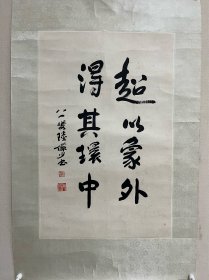 超以象外
得其環中
八一叟陸儼少書